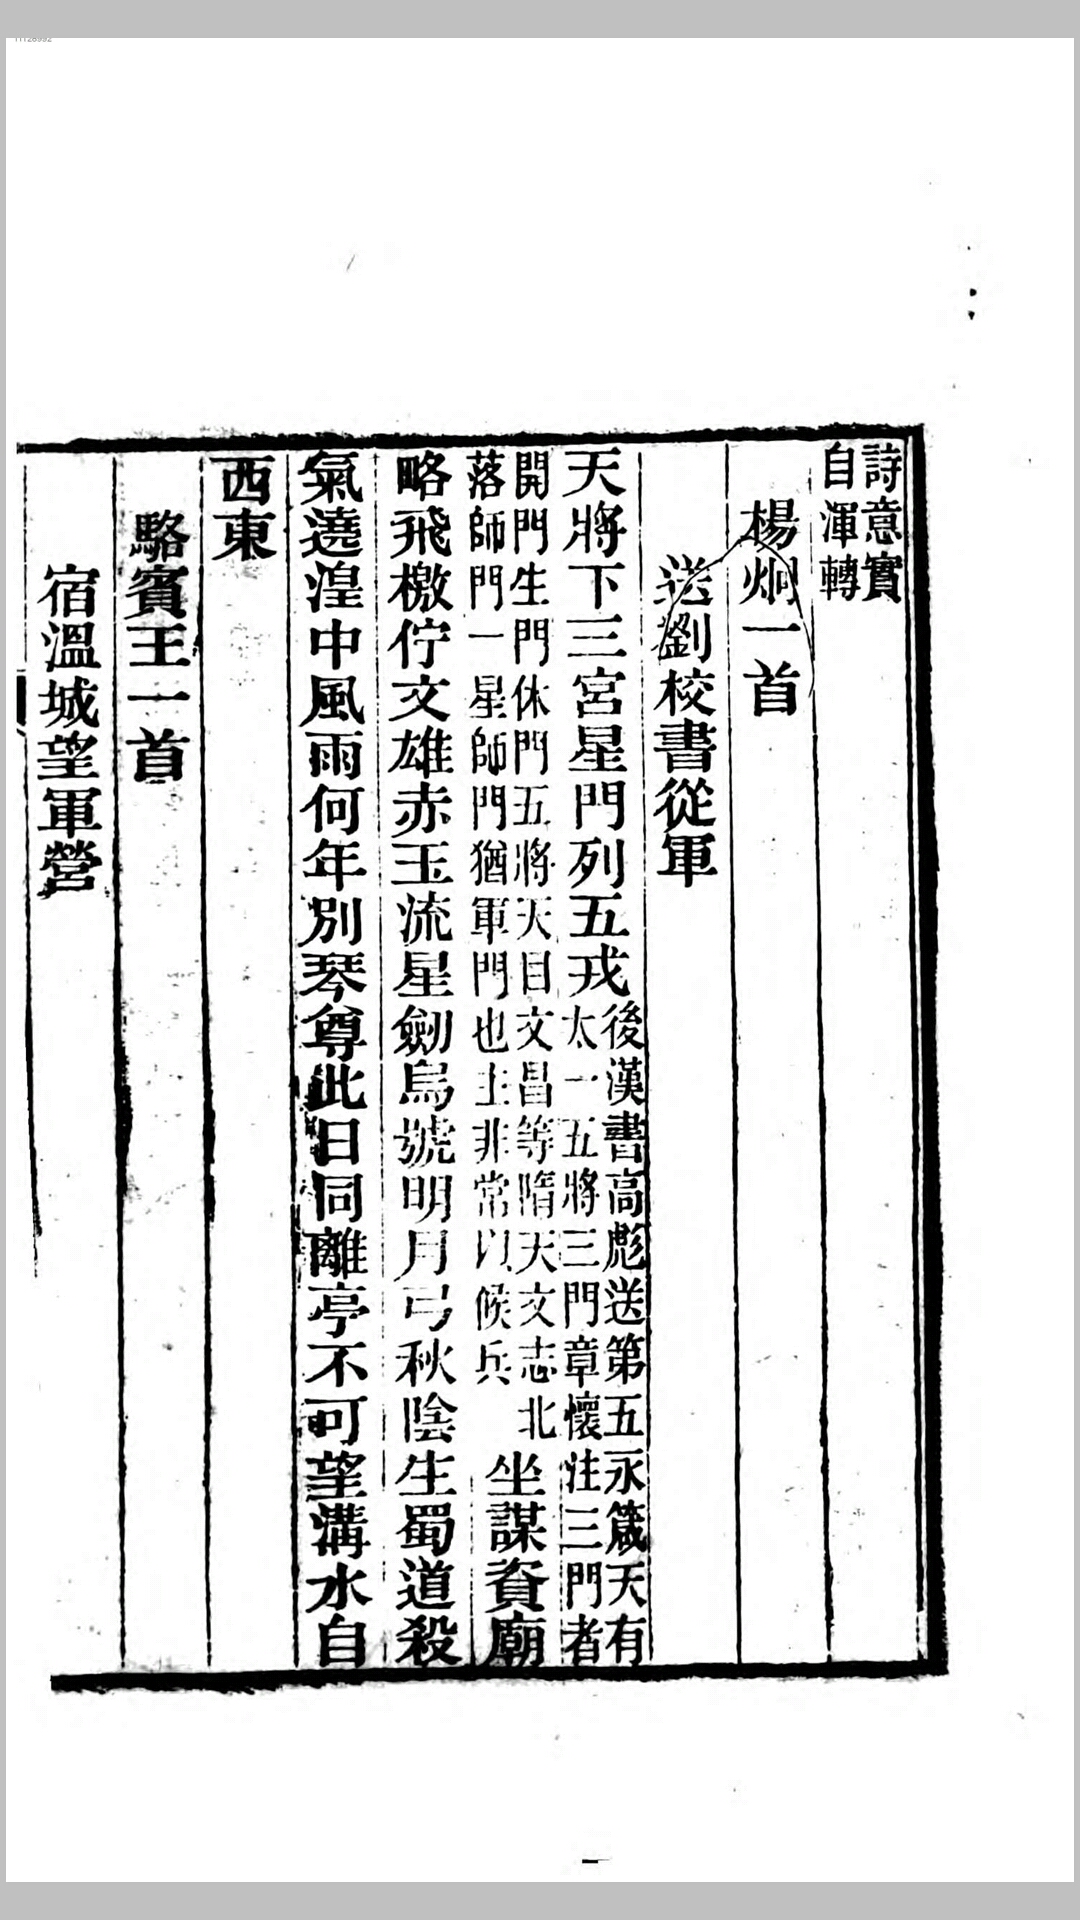 詩意實
自渾轉
楊炯一首
送劉校書從軍
天將下三宮星門列五戎
後漢書高彪送第五永箴天有
太一五將三門章懷注三門者
開門生門休門五將天目文昌等隋天文志北
落師門一星師門猶軍門也主非常以候兵
坐謀資廟
略飛檄佇文雄赤玉流星劒烏號明月弓秋陰生蜀道殺
氣遶湟中風雨何年別琴尊此日同離亭不可望溝水自
西東
駱賓王一首
宿溫城望軍營